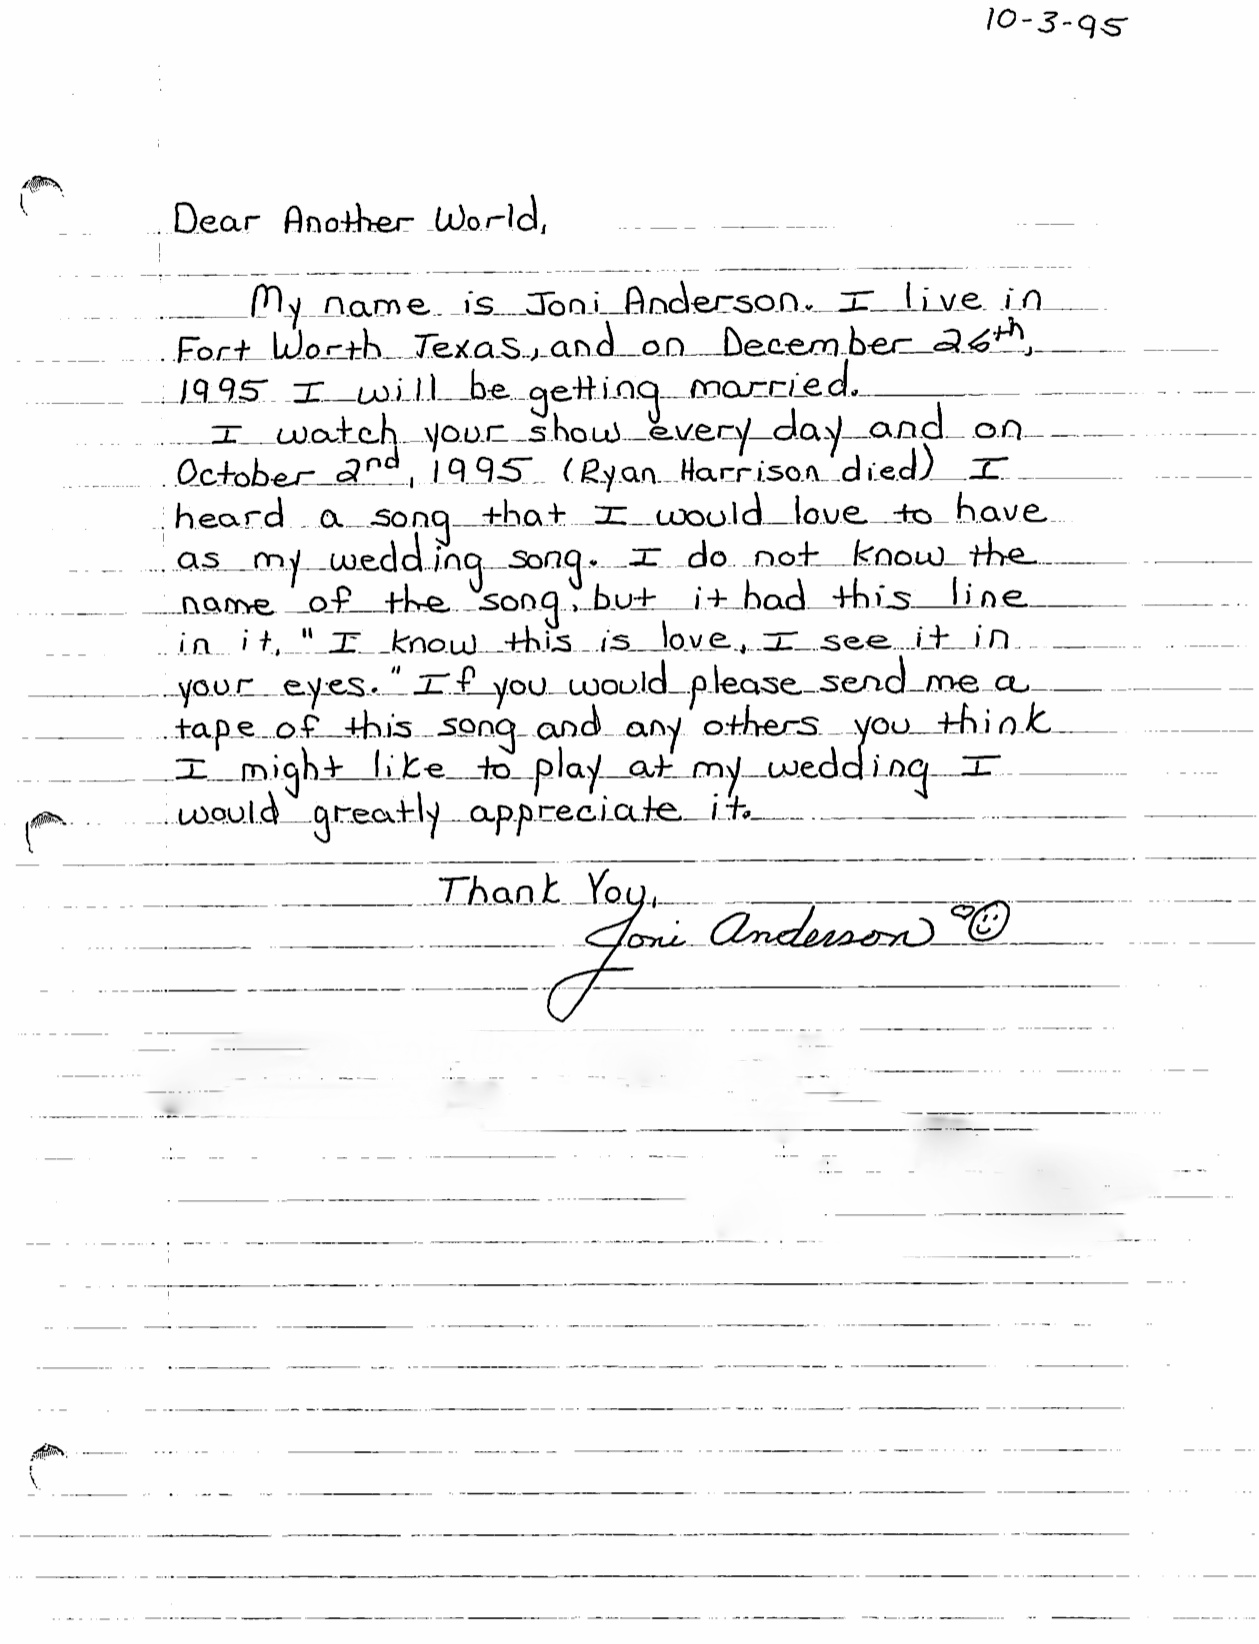 10-3-95
Dear Another World,
My name is Joni Anderson. I live in
Fort Worth Texas, and on December 26th,
1995 I will be getting married.
I watch your show every day and on
October 2nd, 1995 (Ryan Harrison died) I
heard a song that I would love to have
as my wedding song. I do not know the
name of the song, but it had this line
in it, "I know this is love, I see it in
your eyes." If you would please send me a
tape of this song and any others you think
I might like to play at my wedding I
would greatly appreciate it.
Thank You,
Joni Anderson